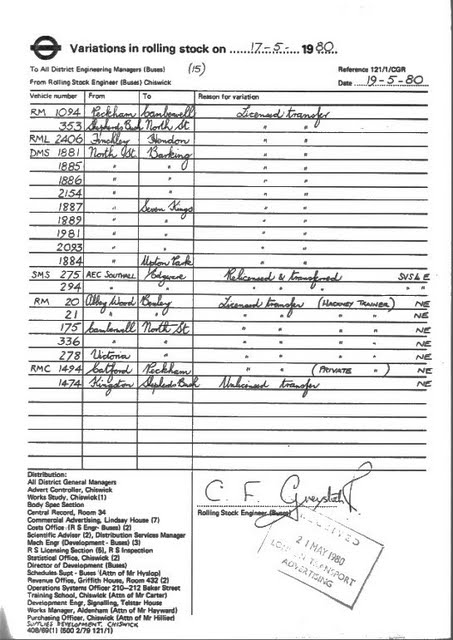 Variations in rolling stock on 17-5- 1980.
To All District Engineering Managers (Buses) (15) Reference 121/1/CGR
From Rolling Stock Engineer (Buses) Chiswick Date 19-5-80
Vehicle number From To Reason for variation
RM 1094 Peckham Camberwell Licensed transfer
353 Shepherds Bush North St " "
RML 2406 Finchley Hendon " "
DMS 1881 North St. Barking " "
1885 " " " "
1886 " " " "
2154 " " " "
1887 " Seven Kings " "
1889 " " " "
1981 " " " "
2093 " " " "
1884 " Upton Park " "
SMS 275 AEC SOUTHALL Edgware Relicensed & transferred SVS & E
294 " " " " " "
RM 20 Abbey Wood Bexley Licensed transfer (HACKNEY TRAINER) NE
21 " " " " " " NE
175 Camberwell North St " " " " NE
336 " " " " " " NE
278 Victoria " " " " " NE
RMC 1494 Catford Peckham " " (PRIVATE ") NE
1474 Kingston Shepherds Bush Unlicensed transfer NE
Distribution:
All District General Managers
Advert Controller, Chiswick
Works Study, Chiswick (1)
Body Spec Section
Central Record, Room 34
Commercial Advertising, Lindsay House (7)
Costs Office (R S Engr- Buses) (2)
Scientific Adviser (2), Distribution Services Manager
Mech Engr (Development - Buses) (3)
R S Licensing Section (5), R S Inspection
Statistical Office, Chiswick (2)
Director of Development (Buses)
Schedules Supt - Buses (Attn of Mr Hyslop)
Revenue Office, Griffith House, Room 432 (2)
Operations Systems Officer 210-212 Baker Street
Training School, Chiswick (Attn of Mr Carter)
Development Engr, Signalling, Telstar House
Works Manager, Aldenham (Attn of Mr Hayward)
Purchasing Officer, Chiswick (Attn of Mr Hillier)
SUPPLIES DEVELOPMENT, CHISWICK
408/69(1) (500 2/79 121/1)
C. F.
Rolling Stock Engineer (Buses)
RECEIVED
21 MAY 1980
LONDON TRANSPORT
ADVERTISING